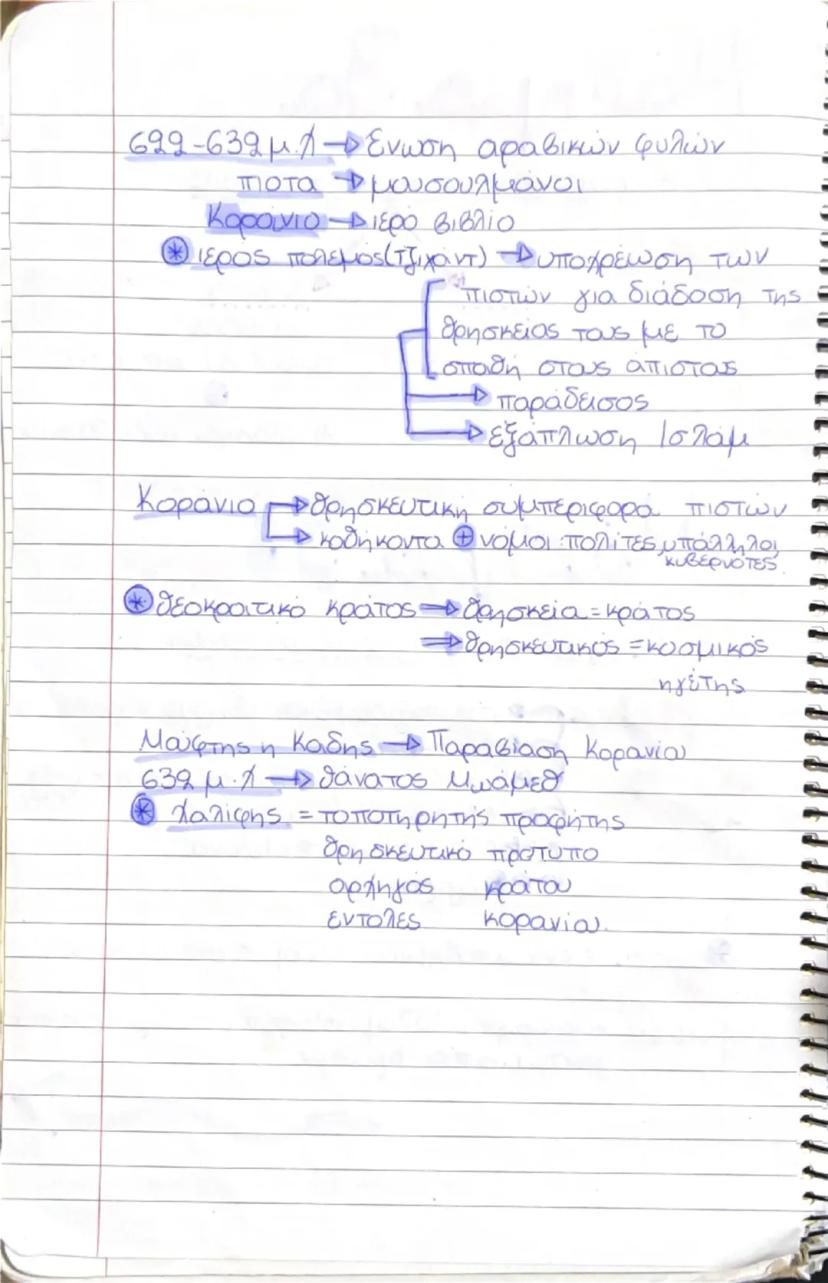 622-632 μ.Χ → Ένωση αραβικών φυλών
πιστα → μουσουλμάνοι
Κοράνιο → ιερό βιβλίο
* ιερος πολεμος (τζιχάντ) → υποχρέωση των
πιστών για διάδοση της
θρησκείας τους με το
σπαθή στους άπιστους
→ παράδεισος
→ εξάπλωση Ισλάμ
Κοράνιο → θρησκευτική συμπεριφορα πιστών
→ καθήκοντα + νόμοι πολίτες, υπάλληλοι
κυβερνότες
* θεοκρατικό κράτος ⇒ θρησκεία = κράτος
⇒ θρησκευτικός = κοσμικός
ηγέτης
Μούφτης η Καδης → Παραβίαση Κορανίου
632 μ.Χ → θάνατος Μωάμεθ
* Χαλίφης = τοποτηρητής προφήτης
θρησκευτικό πρότυπο
αρχηγός κράτου
εντολες κορανίου.